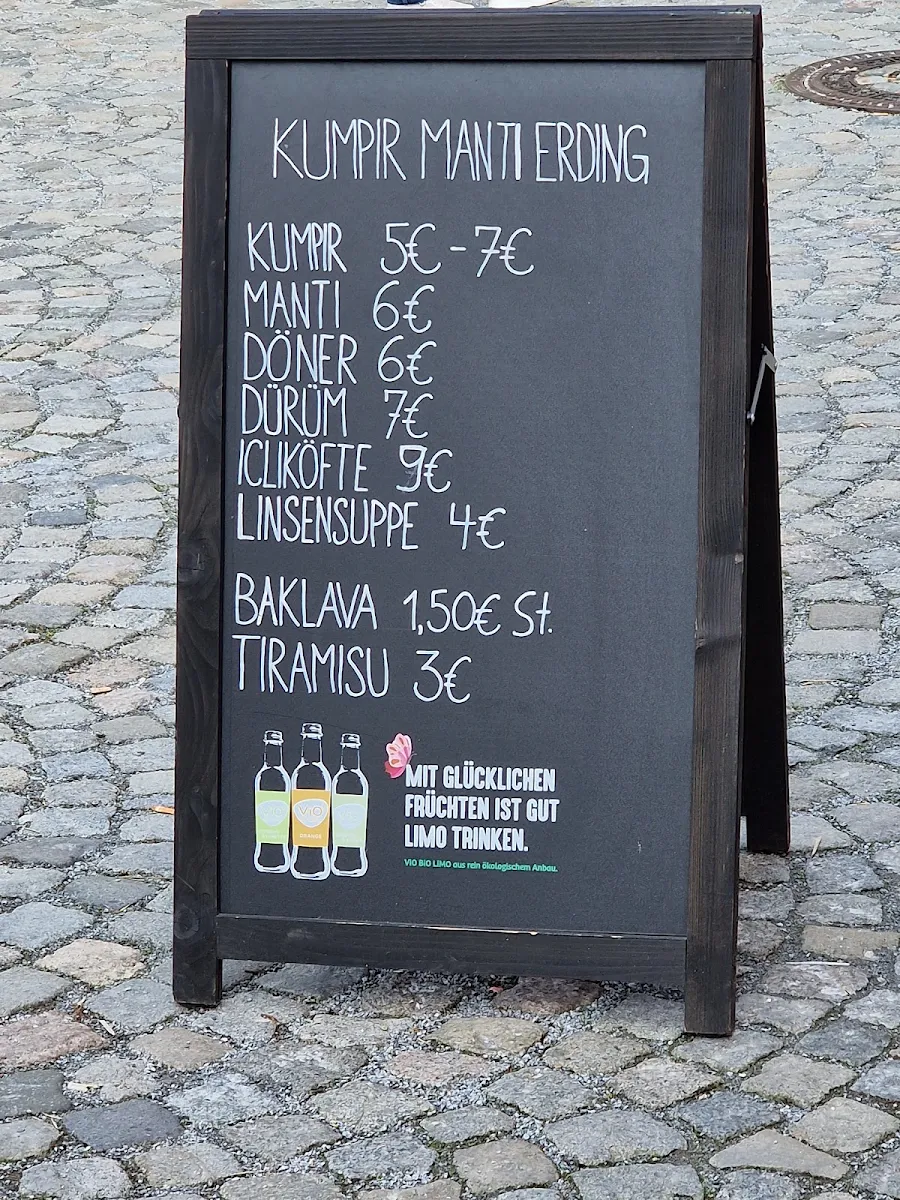 KUMPIR MANTI ERDING
KUMPIR 5€ - 7€
MANTI 6€
DÖNER 6€
DÜRÜM 7€
ICLIKÖFTE 9€
LINSENSUPPE 4€
BAKLAVA 1,50€ St.
TIRAMISU 3€
ViO
ORANGE
MIT GLÜCKLICHEN
FRÜCHTEN IST GUT
LIMO TRINKEN.
ViO BiO LIMO aus rein ökologischem Anbau.